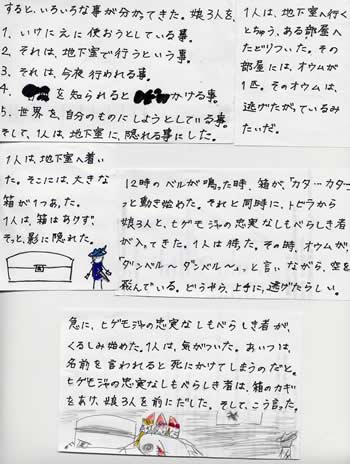 すると、いろいろな事が分かってきた。娘3人を、
1. いけにえに使おうとしている事。
2. それは、地下室で行うという事。
3. それは、今夜行われる事。
4. を知られると かける事。
5. 世界を自分のものにしようとしている事。
そして、1人は、地下室に、隠れる事にした。
1人は、地下室へ行く
とちゅう、ある部屋へ
たどりついた。その
部屋には、オウムが
1匹。そのオウムは、
逃げたがっているみ
たいだ。
1人は、地下室へ着い
た。そこには、大きな
箱が1つあった。
1人は、箱はありず、
そっと、影に隠れた。
12時のベルが鳴った時、箱が、「カタ…カタ…」
っと動き始めた。それと同時に、トビラから
娘3人と、ヒゲモジャの忠実なしもべらしき者
が入ってきた。1人は待った。その時、オウムが、
「ダンベル〜ダンベル〜」っと言いながら、空を
飛んでいる。どうやら、上手に、逃げたらしい。
急に、ヒゲモジャの忠実なしもべらしき者が、
くるしみ始めた。1人は、気がついた。あいつは、
名前を言われると死にかけてしまうのだと。
ヒゲモジャの忠実なしもべらしき者は、箱のカギ
をあけ、娘3人を前にだした。そして、こう言った。